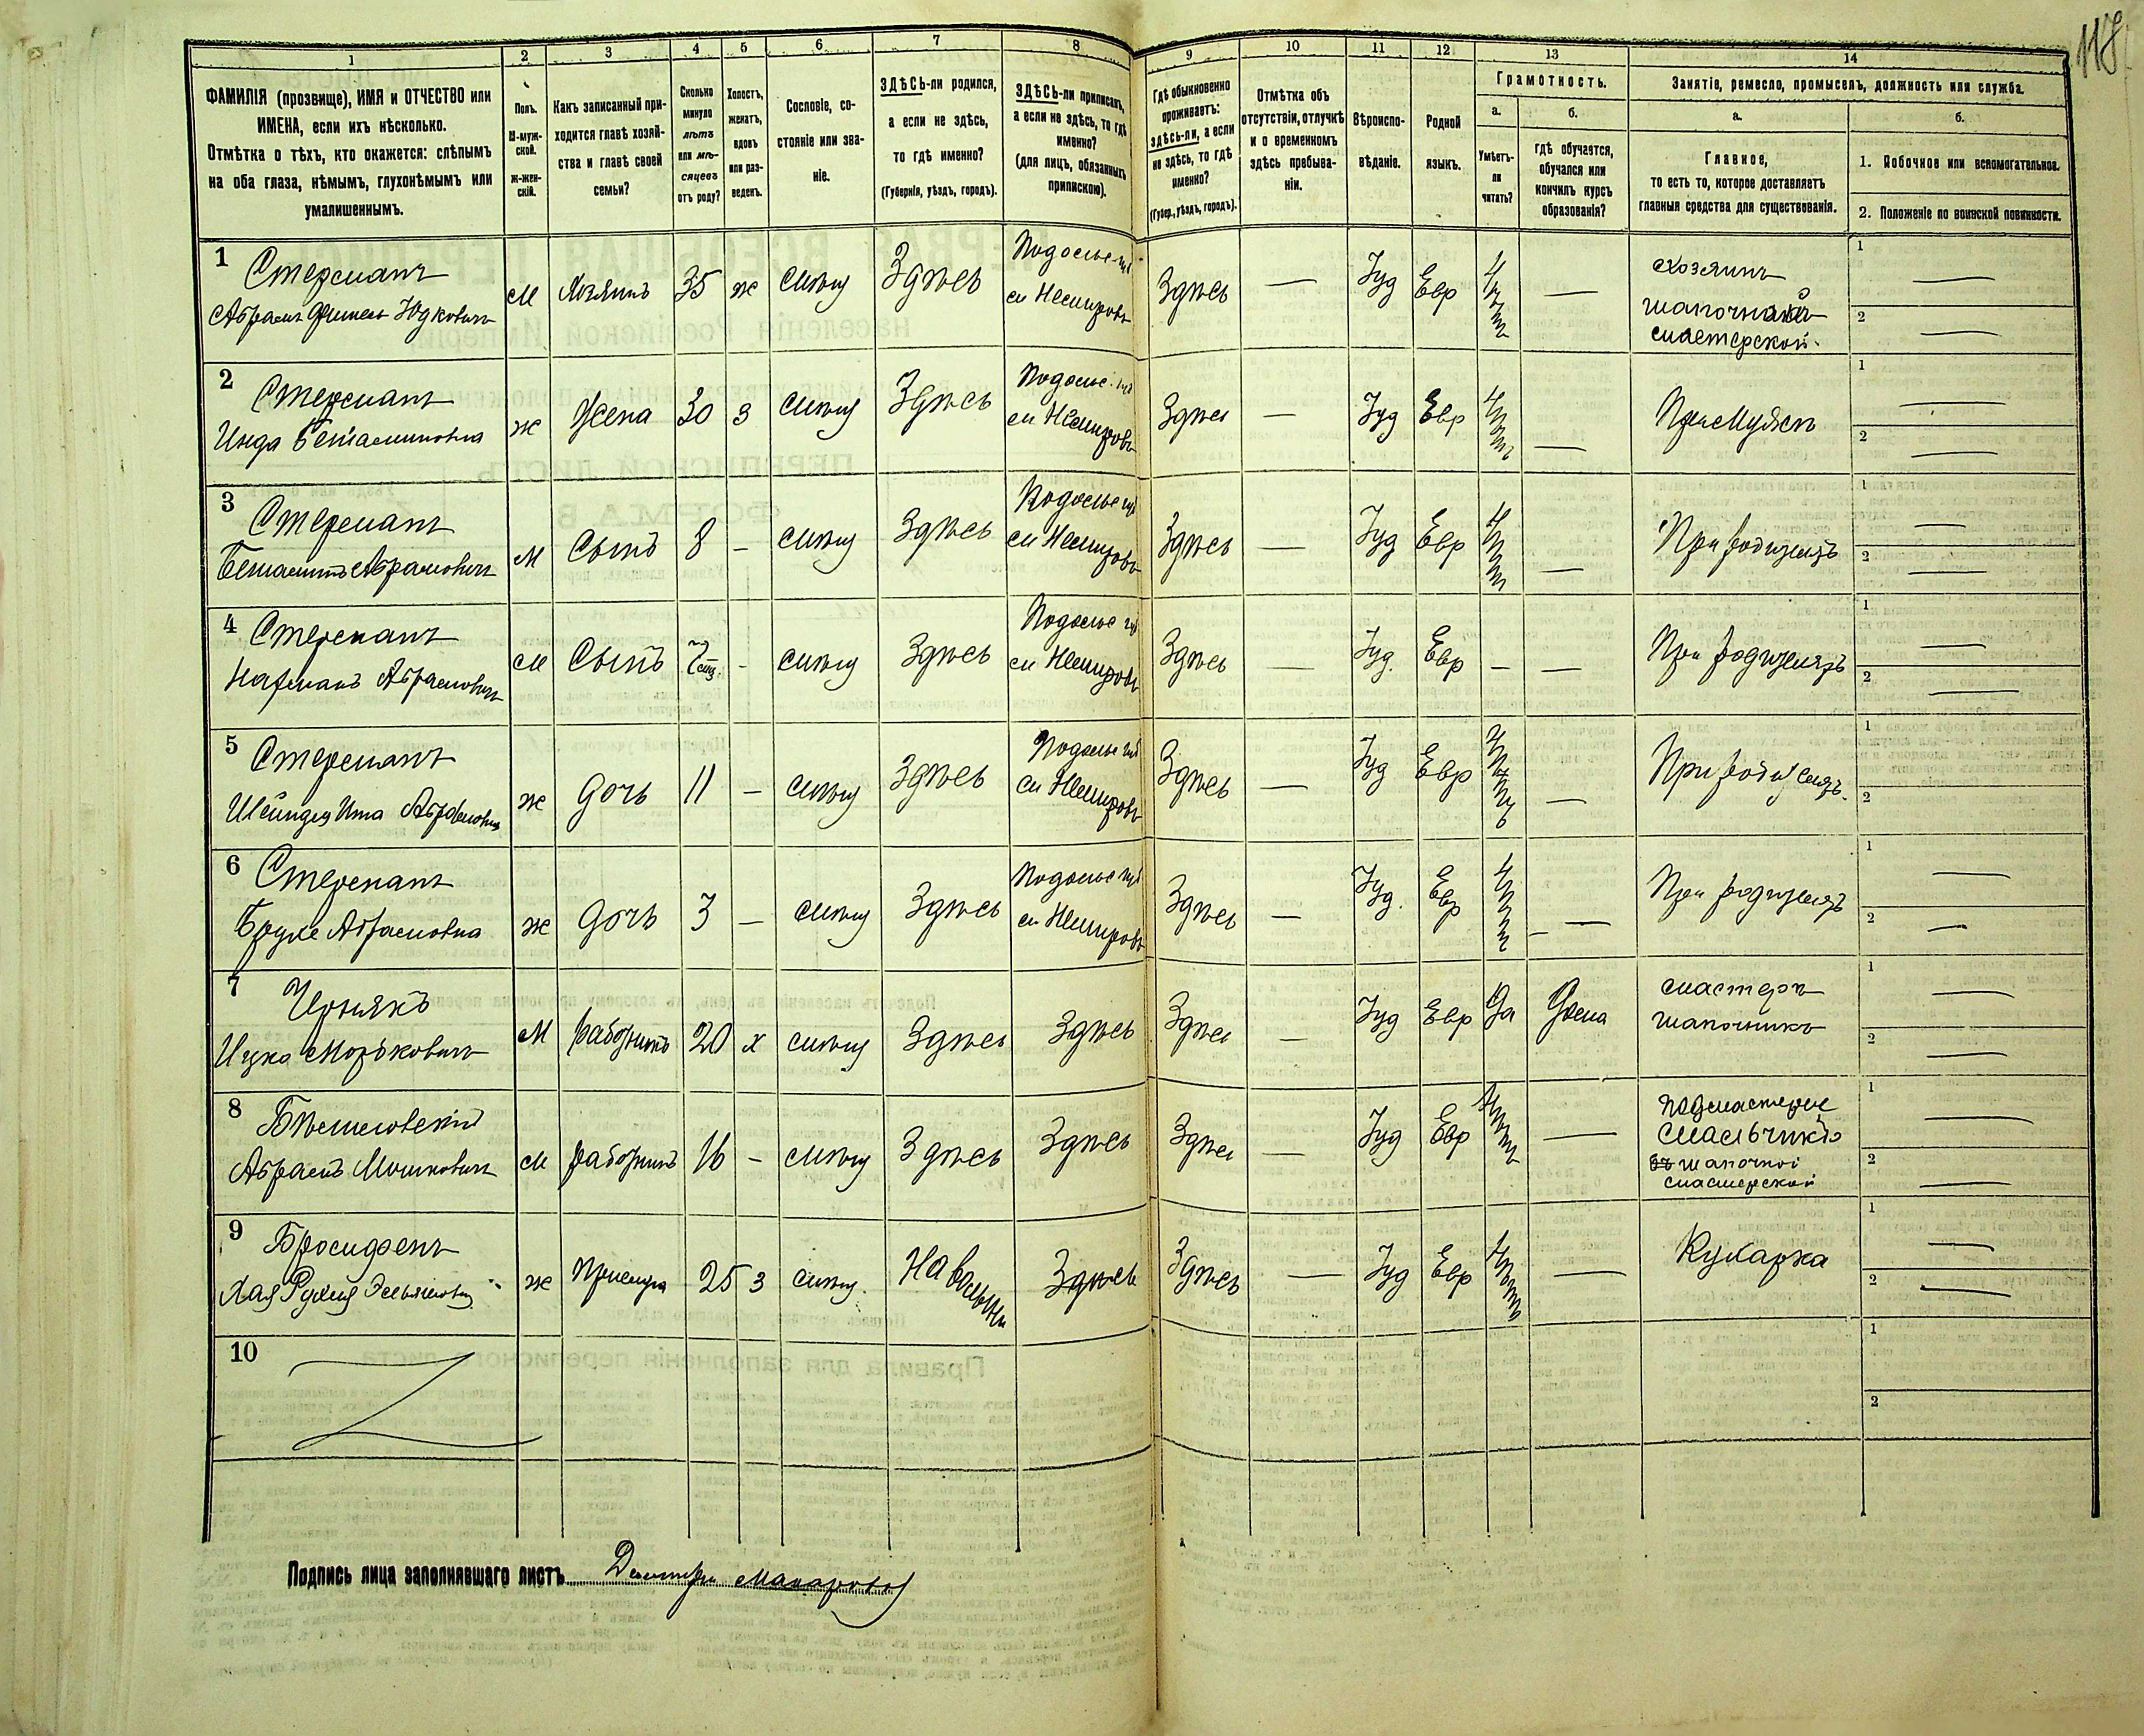 118
1 2 3 4 5 6 7 8 9 10 11 12 13 14
ФАМИЛІЯ (прозвище), ИМЯ и ОТЧЕСТВО или
ИМЕНА, если ихъ нѣсколько.
Отмѣтка о тѣхъ, кто окажется: слѣпымъ
на оба глаза, нѣмымъ, глухонѣмымъ или
умалишеннымъ.
Полъ.
М-муж-
ской.
ж-жен-
скій.
Какъ записанный при-
ходится главѣ хозяй-
ства и главѣ своей
семьи?
Сколько
минуло
лѣтъ
или мѣ-
сяцевъ
отъ роду?
Холостъ,
женатъ,
вдовъ
или раз-
веденъ.
Сословіе, со-
стояніе или зва-
ніе.
ЗДѢСЬ-ли родился,
а если не здѣсь,
то гдѣ именно?
(Губернія, уѣздъ, городъ).
ЗДѢСЬ-ли приписанъ,
а если не здѣсь, то гдѣ
именно?
(для лицъ, обязанныхъ
припискою).
Гдѣ обыкновенно
проживаетъ:
здѣсь-ли, а если
не здѣсь, то гдѣ
именно?
(Губер., уѣздъ, городъ).
Отмѣтка объ
отсутствіи, отлучкѣ
и о временномъ
здѣсь пребыва-
ніи.
Вѣроиспо-
вѣданіе.
Родной
языкъ.
Грамотность.
а.
Умѣетъ-
ли
читать?
б.
гдѣ обучается,
обучался или
кончилъ курсъ
образованія?
Занятіе, ремесло, промыселъ, должность или служба.
а.
Главное,
то есть то, которое доставляетъ
главныя средства для существованія.
б.
1. Побочное или вспомогательное.
2. Положеніе по воинской повинности.
1 Стерманъ
Абрамъ Юдковичъ
М Хозяинъ 35 ж Здѣсь
Подольс. губ
м Немировъ
Здѣсь — Іуд Евр нѣтъ —
Хозяинъ
мастерской
1 —
2 —
2 Стерманъ
Бенюминовна
ж Жена 30 З Здѣсь
Подольс. губ
м Немировъ
Здѣсь — Іуд Евр нѣтъ —
При Мужѣ
1 —
2 —
3 Стерманъ
Беньяминъ Абрамовичъ
М Сынъ 8 – Здѣсь
Подольс губ
м Немировъ
Здѣсь — Іуд Евр нѣтъ —
При родителяхъ
1 —
2 —
4 Стерманъ
Нахманъ Абрамовичъ
М Сынъ – Здѣсь
Подольс губ
м Немировъ
Здѣсь — Іуд. Евр – —
При родителяхъ
1 —
2 —
5 Стерманъ
Шейндля Ита Абрамовна
ж Дочь 11 – Здѣсь
Подольс губ
м Немировъ
Здѣсь — Іуд Евр —
При родителяхъ
1
2
6 Стерманъ
Брухе Абрамовна
ж Дочь 3 – Здѣсь
Подольс губ
м Немировъ
Здѣсь — Іуд. Евр нѣтъ —
При родителяхъ
1 —
2 —
7 Чернякъ
Ицко Мордковичъ
М работникъ 20 х Здѣсь Здѣсь
Здѣсь — Іуд Евр Да Дома
мастеръ
шапочникъ
1 —
2 —
8
Абрамъ Мошковичъ
М работникъ 16 – Здѣсь Здѣсь
Здѣсь — Іуд Евр нѣтъ —
подмастерье
мальчикъ
въ шапочной
мастерской
1 —
2 —
9
Хая Рухля
ж Прислуга 25 З На Волыни Здѣсь
Здѣсь — Іуд Евр нѣтъ —
Кухарка
1 —
2 —
10
1
2
Подпись лица заполнявшаго листъ Макаровъ